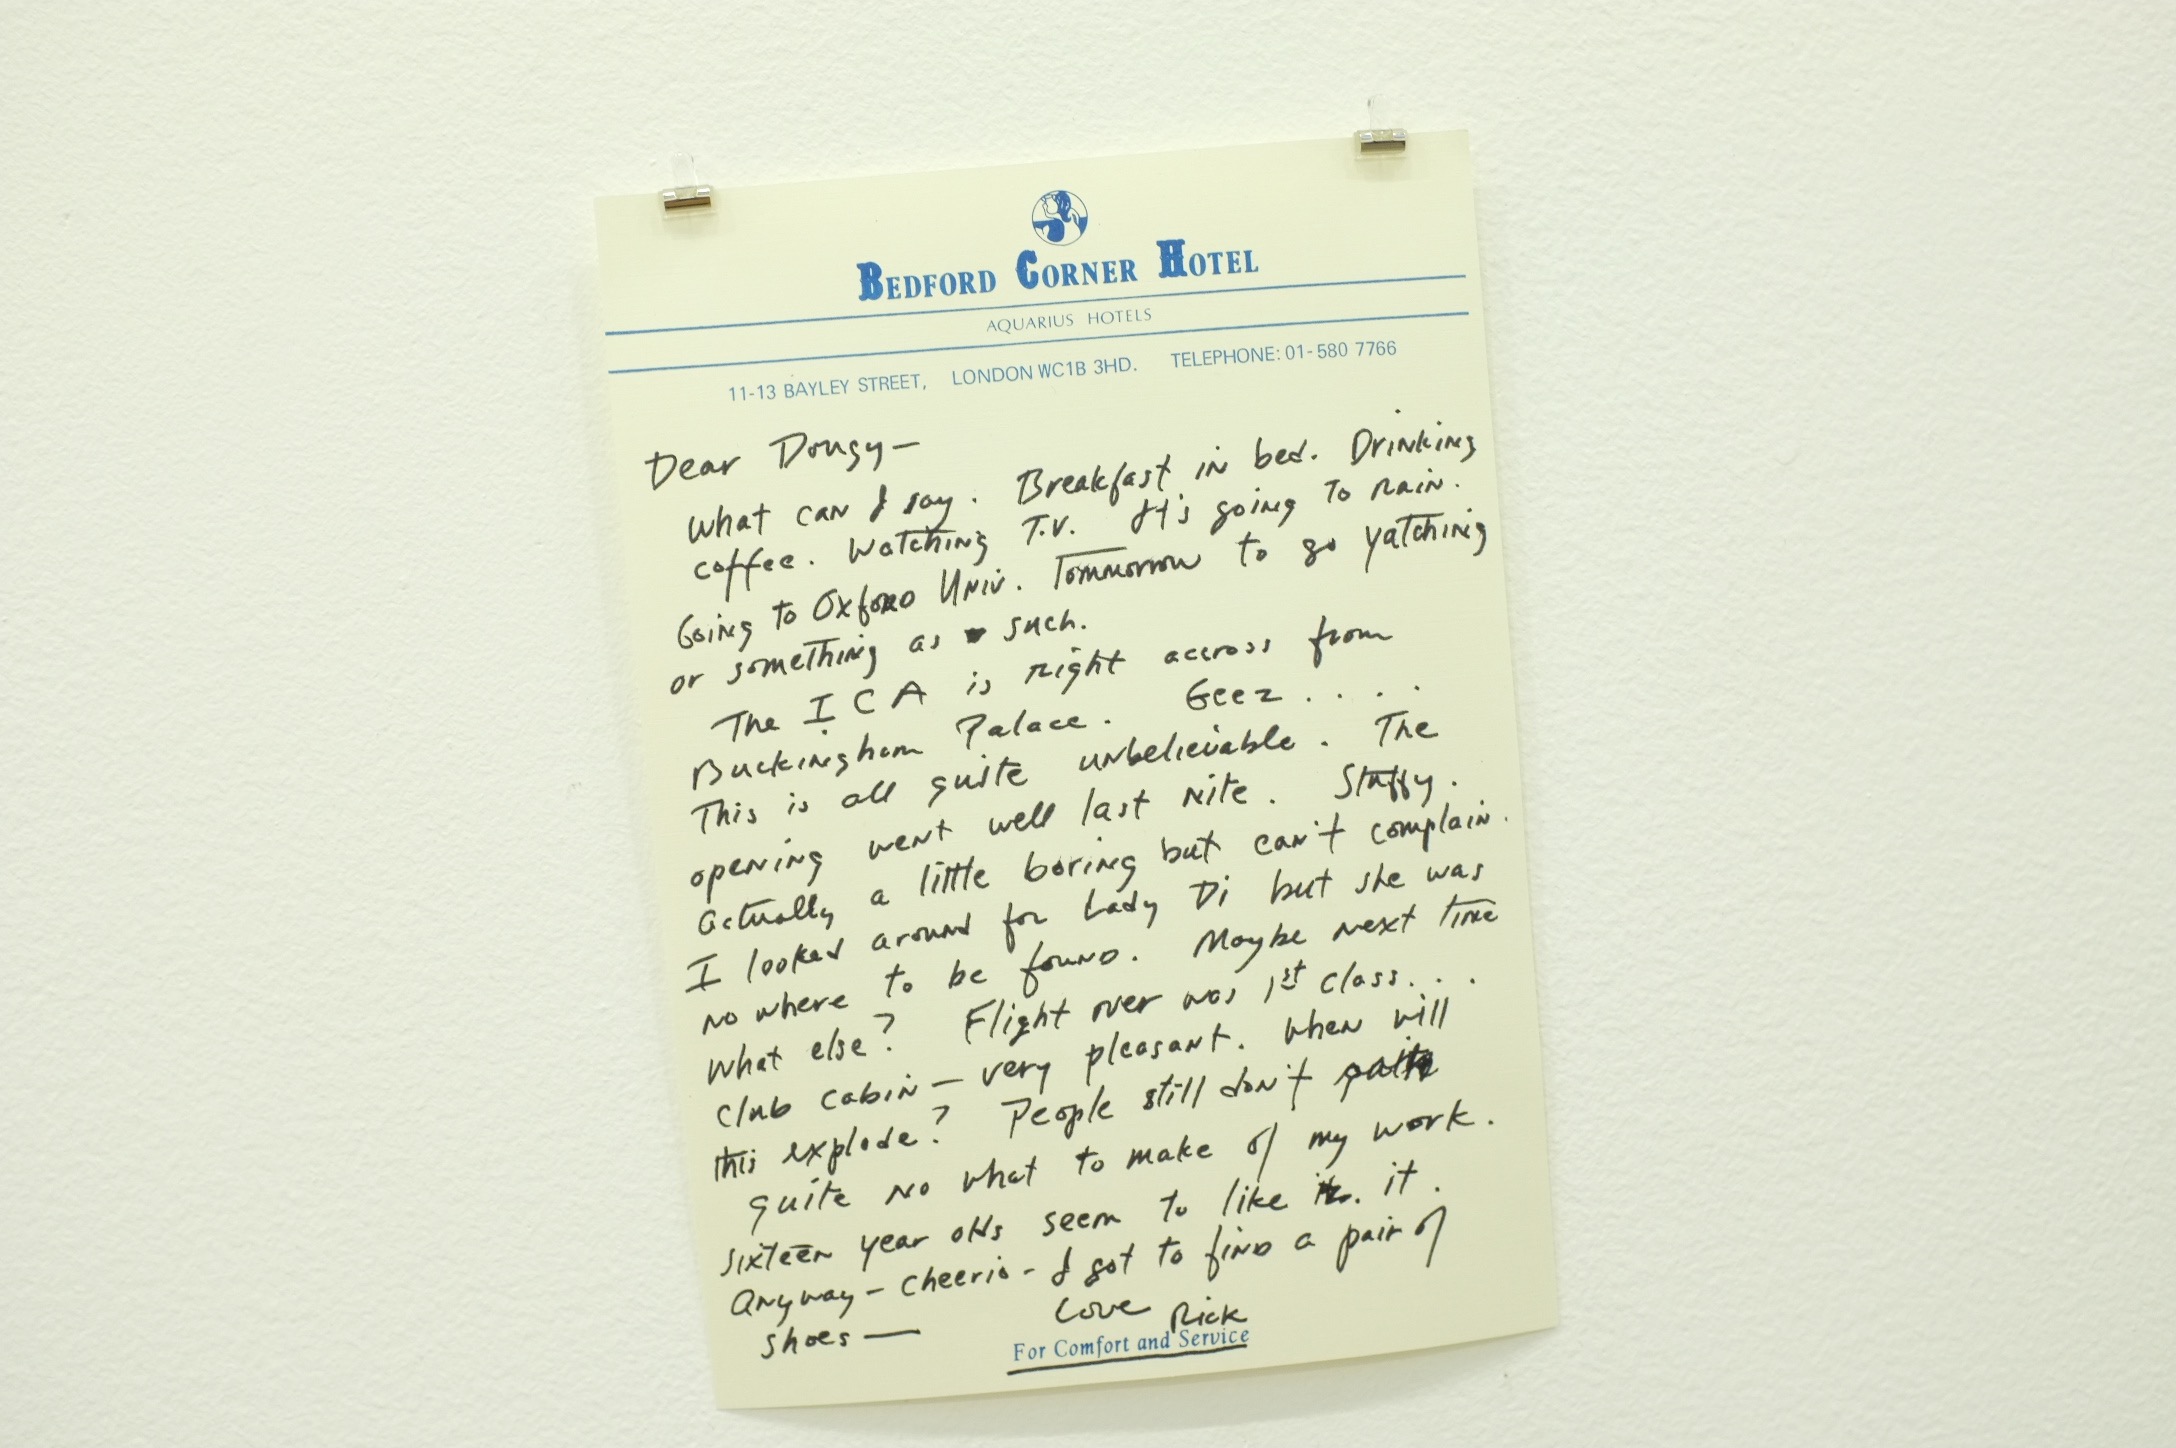 BEDFORD CORNER HOTEL
AQUARIUS HOTELS
11-13 BAYLEY STREET, LONDON WC1B 3HD. TELEPHONE: 01-580 7766
Dear Dougy —
What can I say. Breakfast in bed. Drinking
coffee. Watching T.V. It's going to rain.
Going to Oxford Univ. Tommorrow to go yatching
or something as such.
The ICA is right accross from
Buckingham Palace. Geez . . . .
This is all quite unbelievable. The
opening went well last nite. Stuffy.
Actually a little boring but can't complain.
I looked around for Lady Di but she was
no where to be found. Maybe next time
What else? Flight over was 1st class. . .
club cabin — very pleasant. When will
this explode? People still don't
quite no what to make of my work.
Sixteen year olds seem to like it.
Anyway — cheerio - I got to find a pair of
shoes —
Love Rick
For Comfort and Service